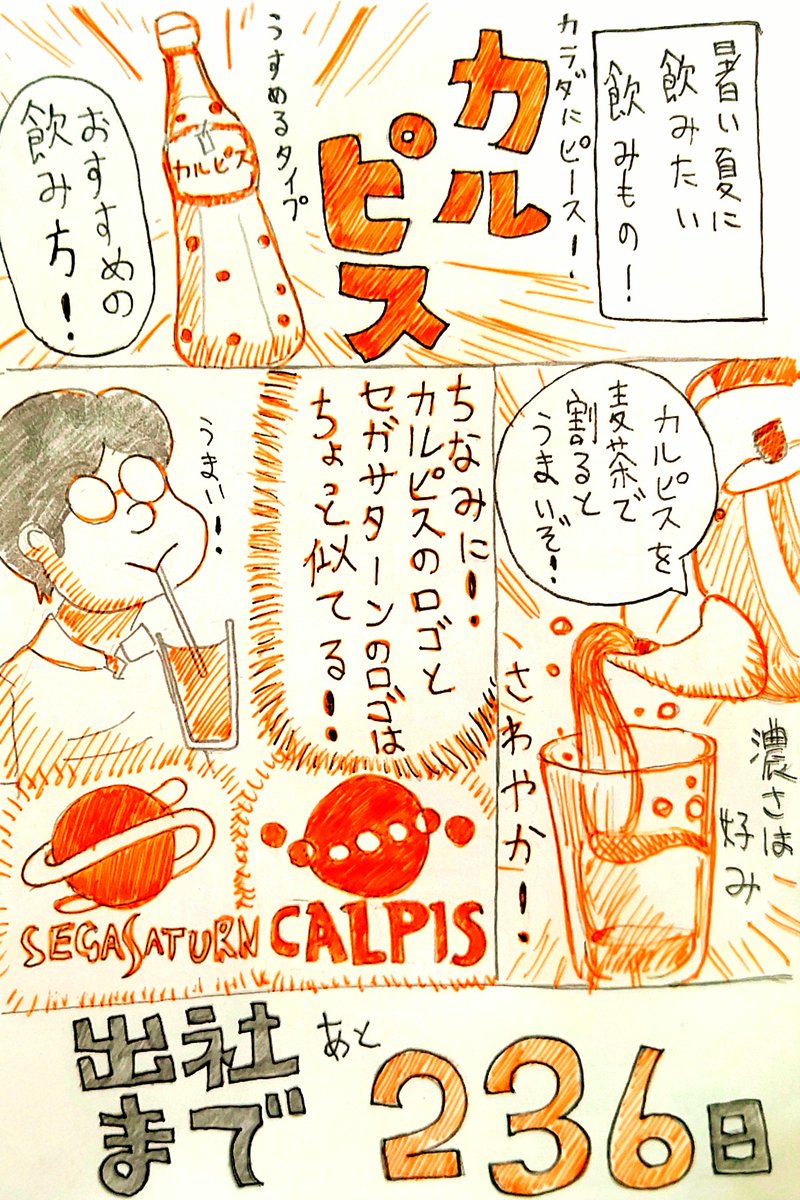 暑い夏に
飲みたい
飲みもの！
カラダにピース！
カル
ピス
うすめるタイプ
カルピス
おすすめの
飲み方！
カルピスを
麦茶で
割ると
うまいぞ！
さわやか！
濃さは
好み
ちなみに！
カルピスのロゴと
セガサターンのロゴは
ちょっと似てる！
うまい！
SEGASATURN
CALPIS
出社
まで
あと
236日